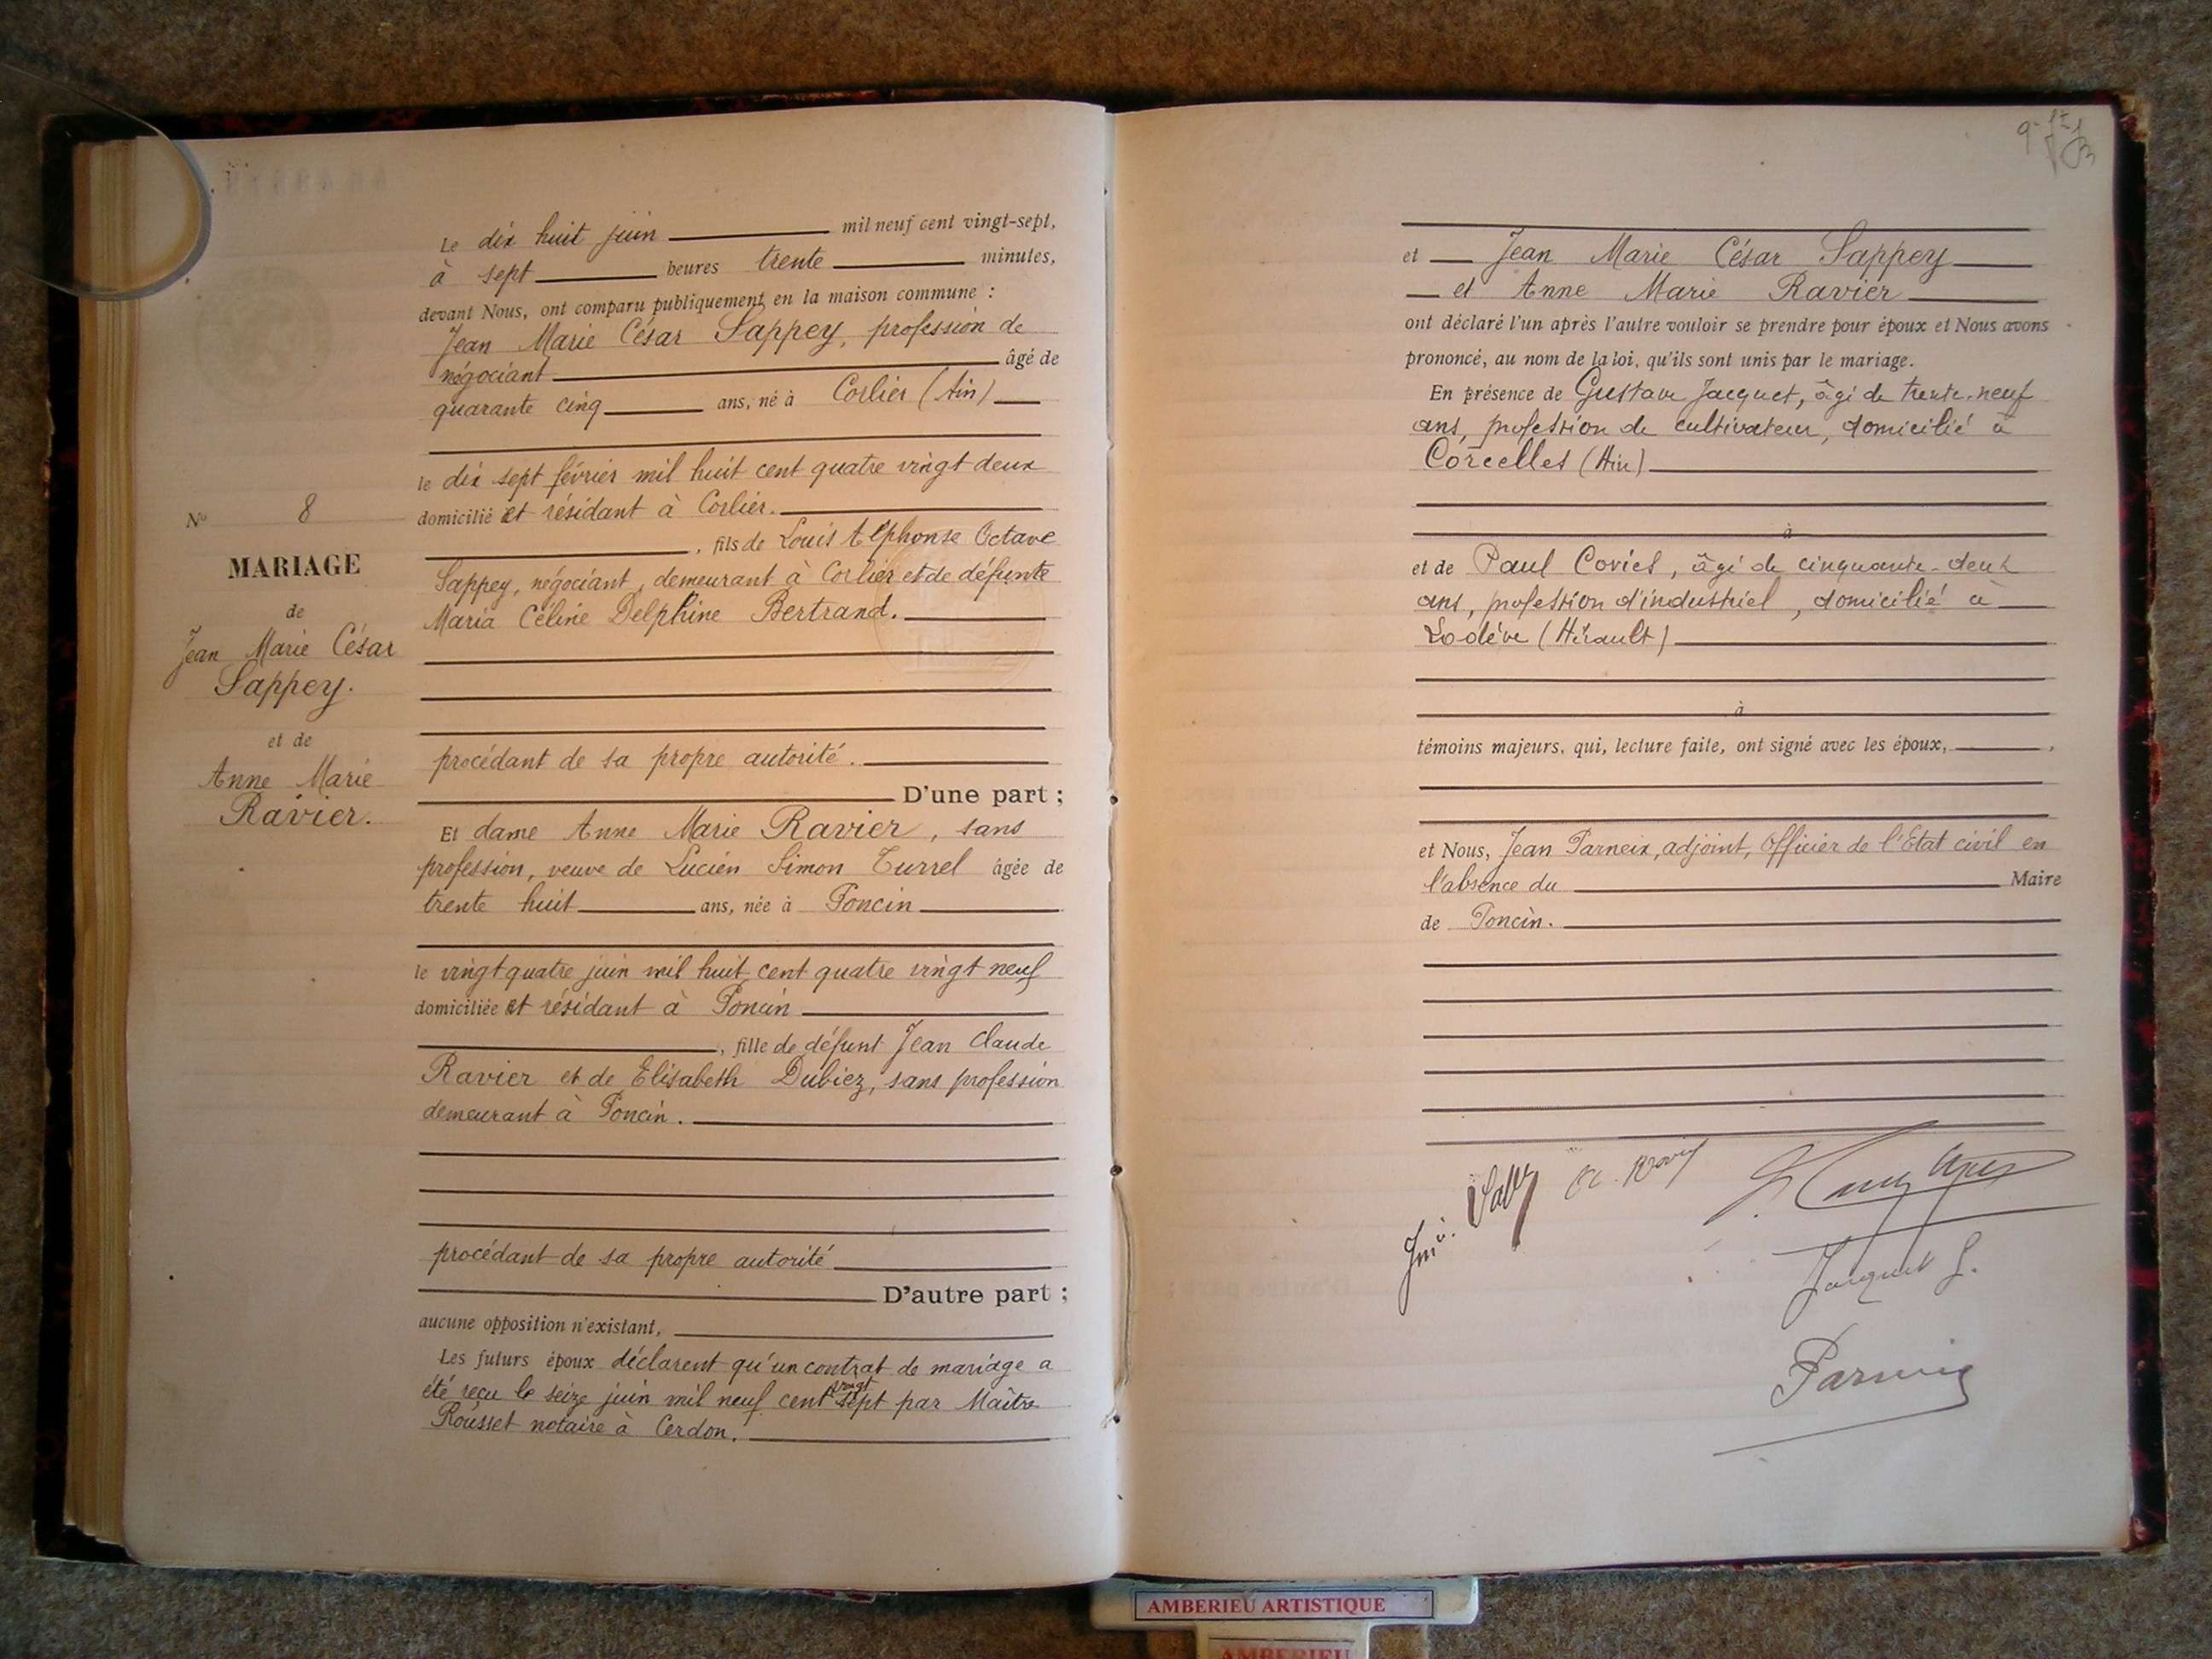 Le dix huit juin mil neuf cent vingt-sept,
à sept heures trente minutes,
devant Nous, ont comparu publiquement en la maison commune :
Jean Marie César Sappey, profession de
négociant âgé de
quarante cinq ans, né à Corlier (Ain)
le dix sept février mil huit cent quatre vingt deux
domicilié et résidant à Corlier.
, fils de Louis Alphonse Octave
Sappey, négociant, demeurant à Corlier et de défunte
Maria Céline Delphine Bertrand.
procédant de sa propre autorité.
D'une part ;
Et dame Anne Marie Ravier, sans
profession, veuve de Lucien Simon Turrel âgée de
trente huit ans, née à Poncin
le vingt quatre juin mil huit cent quatre vingt neuf
domiciliée et résidant à Poncin
, fille de défunt Jean Claude
Ravier et de Elisabeth Dubiez, sans profession
demeurant à Poncin.
procédant de sa propre autorité
D'autre part ;
aucune opposition n'existant,
Les futurs époux déclarent qu'un contrat de mariage a
été reçu le seize juin mil neuf cent vingt sept par Maître
Rousset notaire à Cerdon.
N° 8
MARIAGE
de
Jean Marie César
Sappey.
et de
Anne Marie
Ravier.
et Jean Marie César Sappey
et Anne Marie Ravier
ont déclaré l'un après l'autre vouloir se prendre pour époux et Nous avons
prononcé, au nom de la loi, qu'ils sont unis par le mariage.
En présence de Gustave Jacquet, âgé de trente-neuf
ans, profession de cultivateur, domicilié à
Corcelles (Ain)
à
et de Paul Coviel, âgé de cinquante-deux
ans, profession d'industriel, domicilié à
Lodève (Hérault)
à
témoins majeurs, qui, lecture faite, ont signé avec les époux, ,
et Nous, Jean Parneix, adjoint, Officier de l'Etat civil en
l'absence du Maire
de Poncin.
Jacquet G.
Parneix
AMBERIEU ARTISTIQUE
AMBERIEU